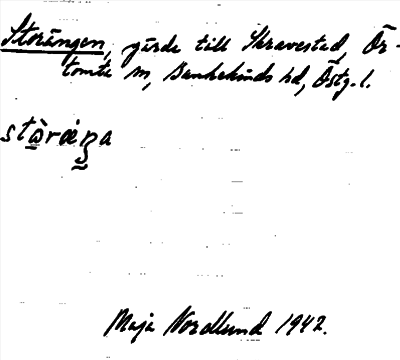 Storängen, gärde till Skravestad, Ör-
tomta sn, Bankekinds hd, Östg. l.
stòräŋa
Maja Nordlund 1942.